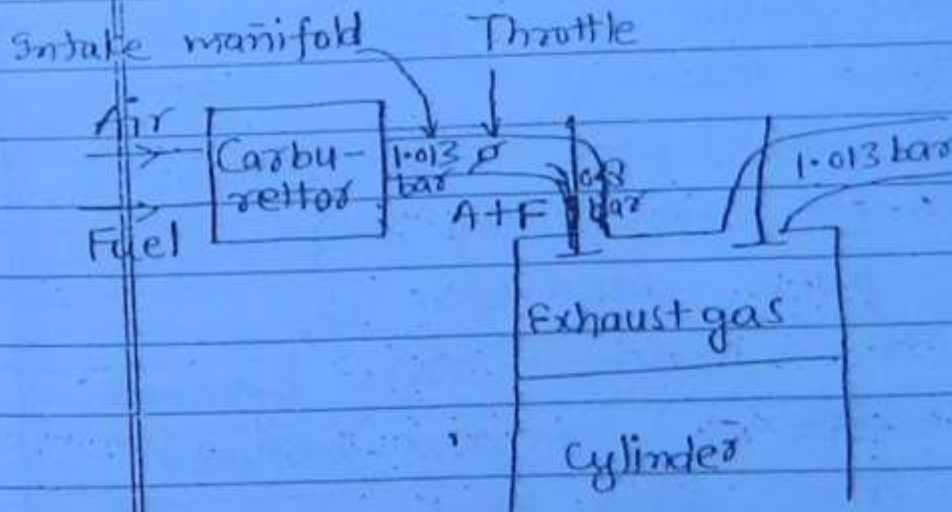 Intake manifold
Throttle
Air
Fuel
Carbu-
rettor
1.013
bar
A+F
bar
1.013 bar
Exhaust gas
Cylinder